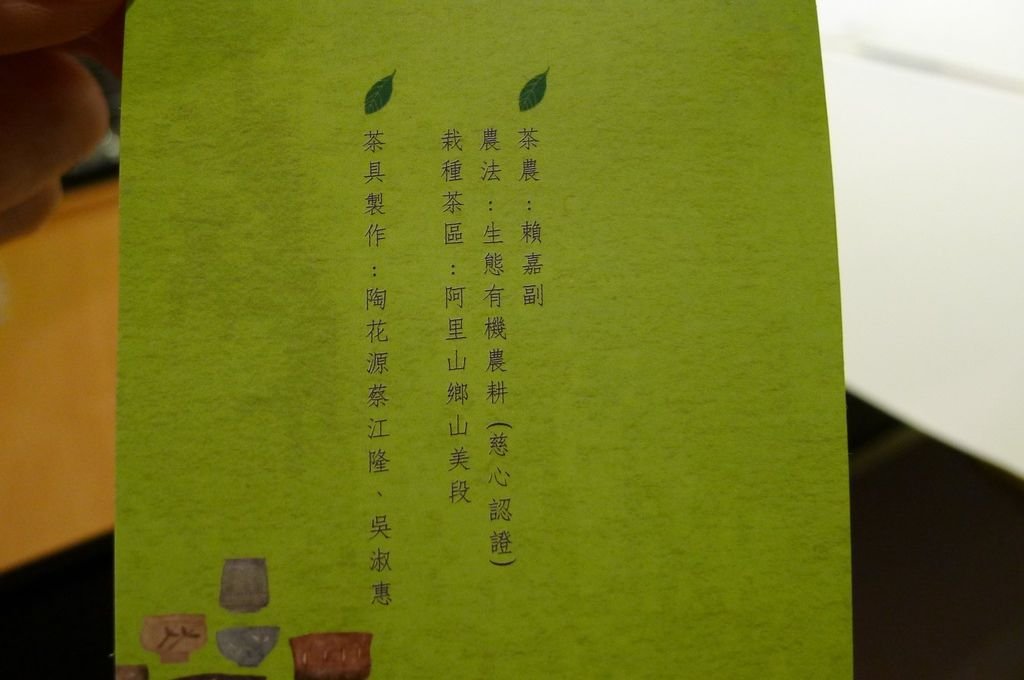 茶農：賴嘉副
農法：生態有機農耕(慈心認證)
栽種茶區：阿里山鄉山美段
茶具製作：陶花源蔡江隆、吳淑惠